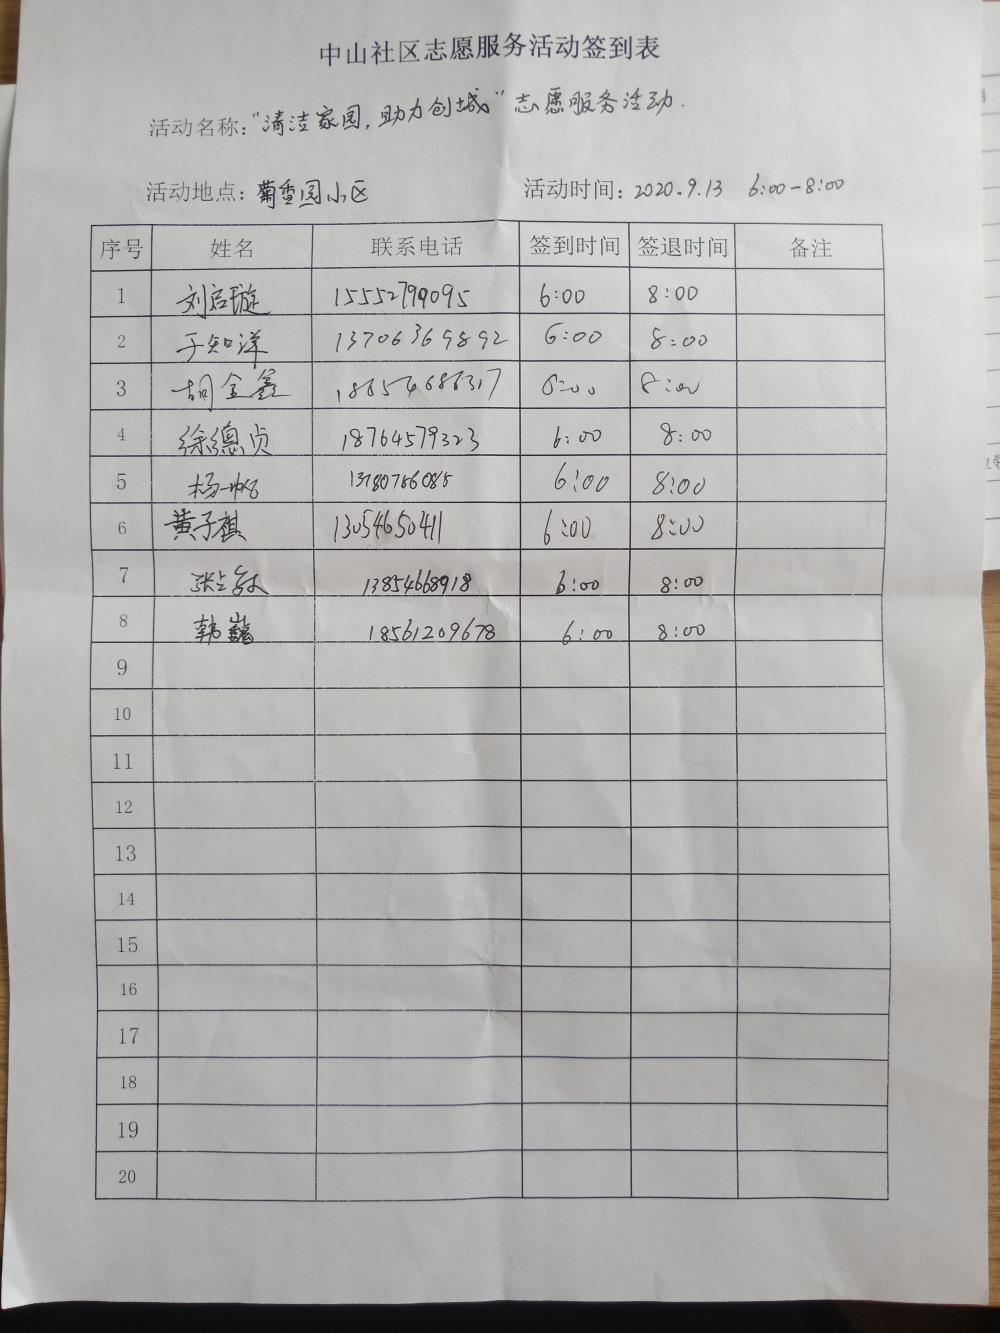 中山社区志愿服务活动签到表
活动名称:“清洁家园,助力创城”志愿服务活动.
活动地点:菊香园小区 活动时间:2020.9.13 6:00-8:00
序号 姓名 联系电话 签到时间 签退时间 备注
1 刘启璇 15552799095 6:00 8:00
2 于知洋 13706369892 6:00 8:00
3 胡金鑫 18654686317 6:00 8:00
4 徐德贞 18764579323 6:00 8:00
5 杨一帆 13780756085 6:00 8:00
6 黄子祺 13054650411 6:00 8:00
7 13854668918 6:00 8:00
8 韩 18561209678 6:00 8:00
9
10
11
12
13
14
15
16
17
18
19
20